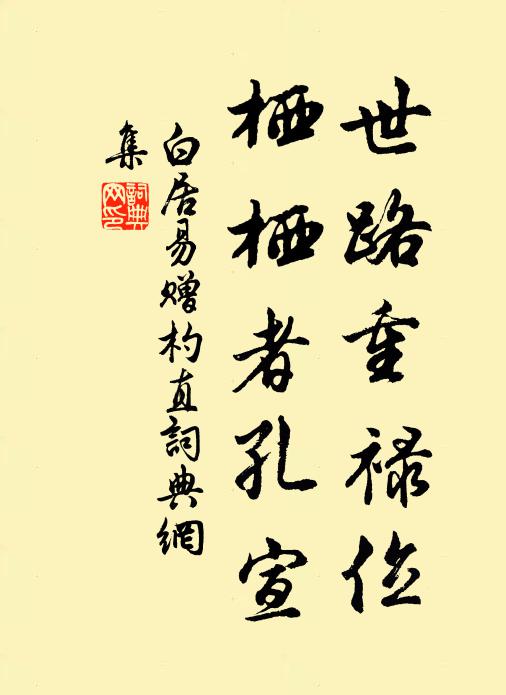 世路重禄位
栖栖者孔宣
白居易赠杓直詞典網
集
詞典
网印